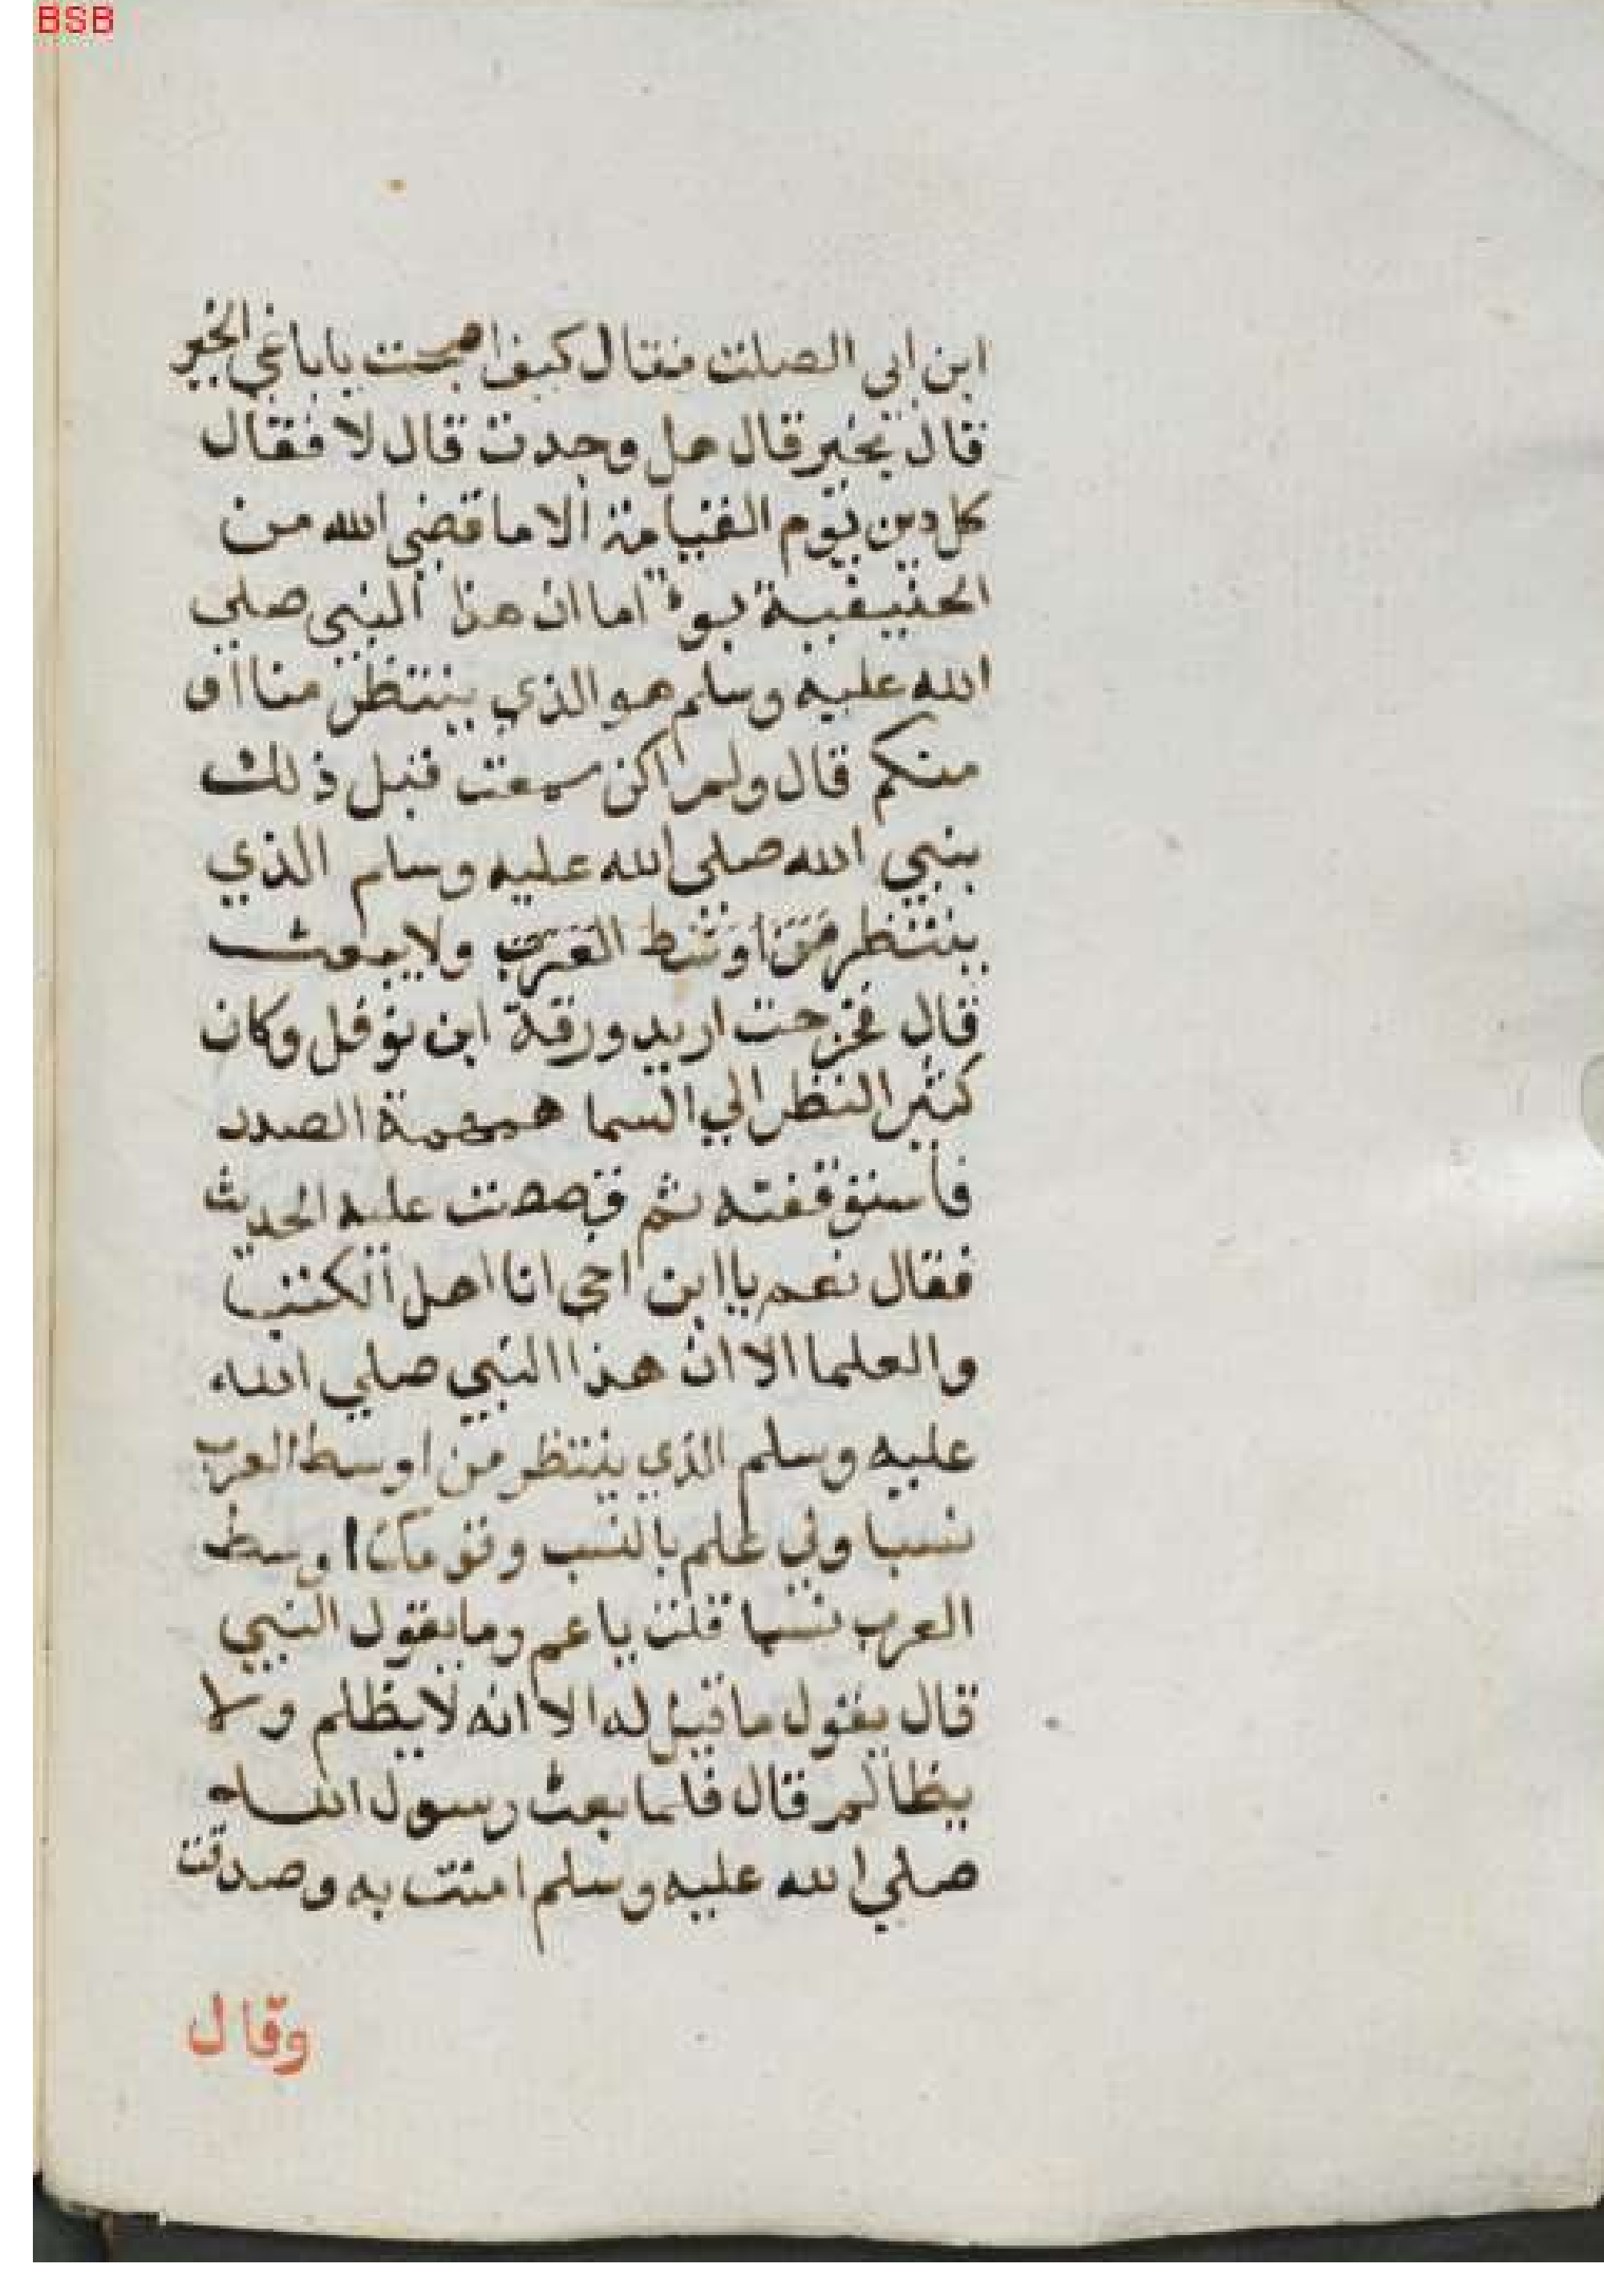 BSB
ابن ابي الصلت فقال كيف اصبحت ياباغي الخير
قال بخير قال هل وجدت قال لا فقال
كل دين يوم القيامة الا ما قضي الله من
الحنيفية بور اما ان هذا النبي صلي
الله عليه وسلم هو الذي ينتظر منا او
منكم قال ولم اكن سمعت قبل ذلك
بنبي الله صلي الله عليه وسلم الذي
ينتظر العرب ولا يبعث
قال فخرجت اريد ورقة ابن نوفل وكان
كثير النظر الي السما همهمة الصدر
فاستوقفته ثم قصصت عليه الحديث
فقال نعم يا ابن اخي انا اهل الكتب
والعلما الا ان هذا النبي صلي الله
عليه وسلم الذي ينتظر من اوسط العرب
نسبا ولي علم بالنسب وقومك اوسط
العرب نسبا قلت يا عم وما يقول النبي
قال يقول ما قيل له الا انه لا يظلم ولا
يظالم قال فلما بعث رسول الله
صلي الله عليه وسلم امنت به وصدقت
وقال